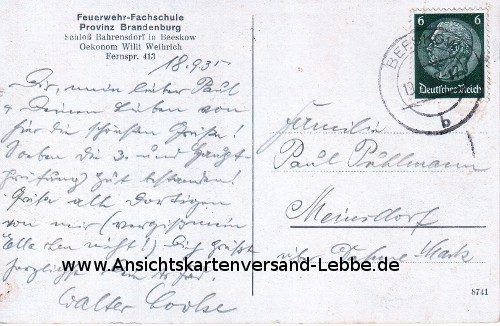 Feuerwehr-Fachschule
Provinz Brandenburg
Schloß Bahrensdorf in Beeskow
Oekonom Willi Weihrich
Fernspr. 443
18.9.35
Dir, mein lieber Paul
u. Deinen Lieben von
für die schönsten Grüße!
Soeben die 3. und Haupt-
prüfung gut bestanden!
Grüße alle dortigen
von mir (vergiß mein
nicht!) Dich grüßt
herzlichst
Walter
6 6
Deutsches Reich
BEES
b
Familie
Paul Pühlmann
Meinsdorf
über Dahme Mark
www.Ansichtskartenversand-Lebbe.de
8741